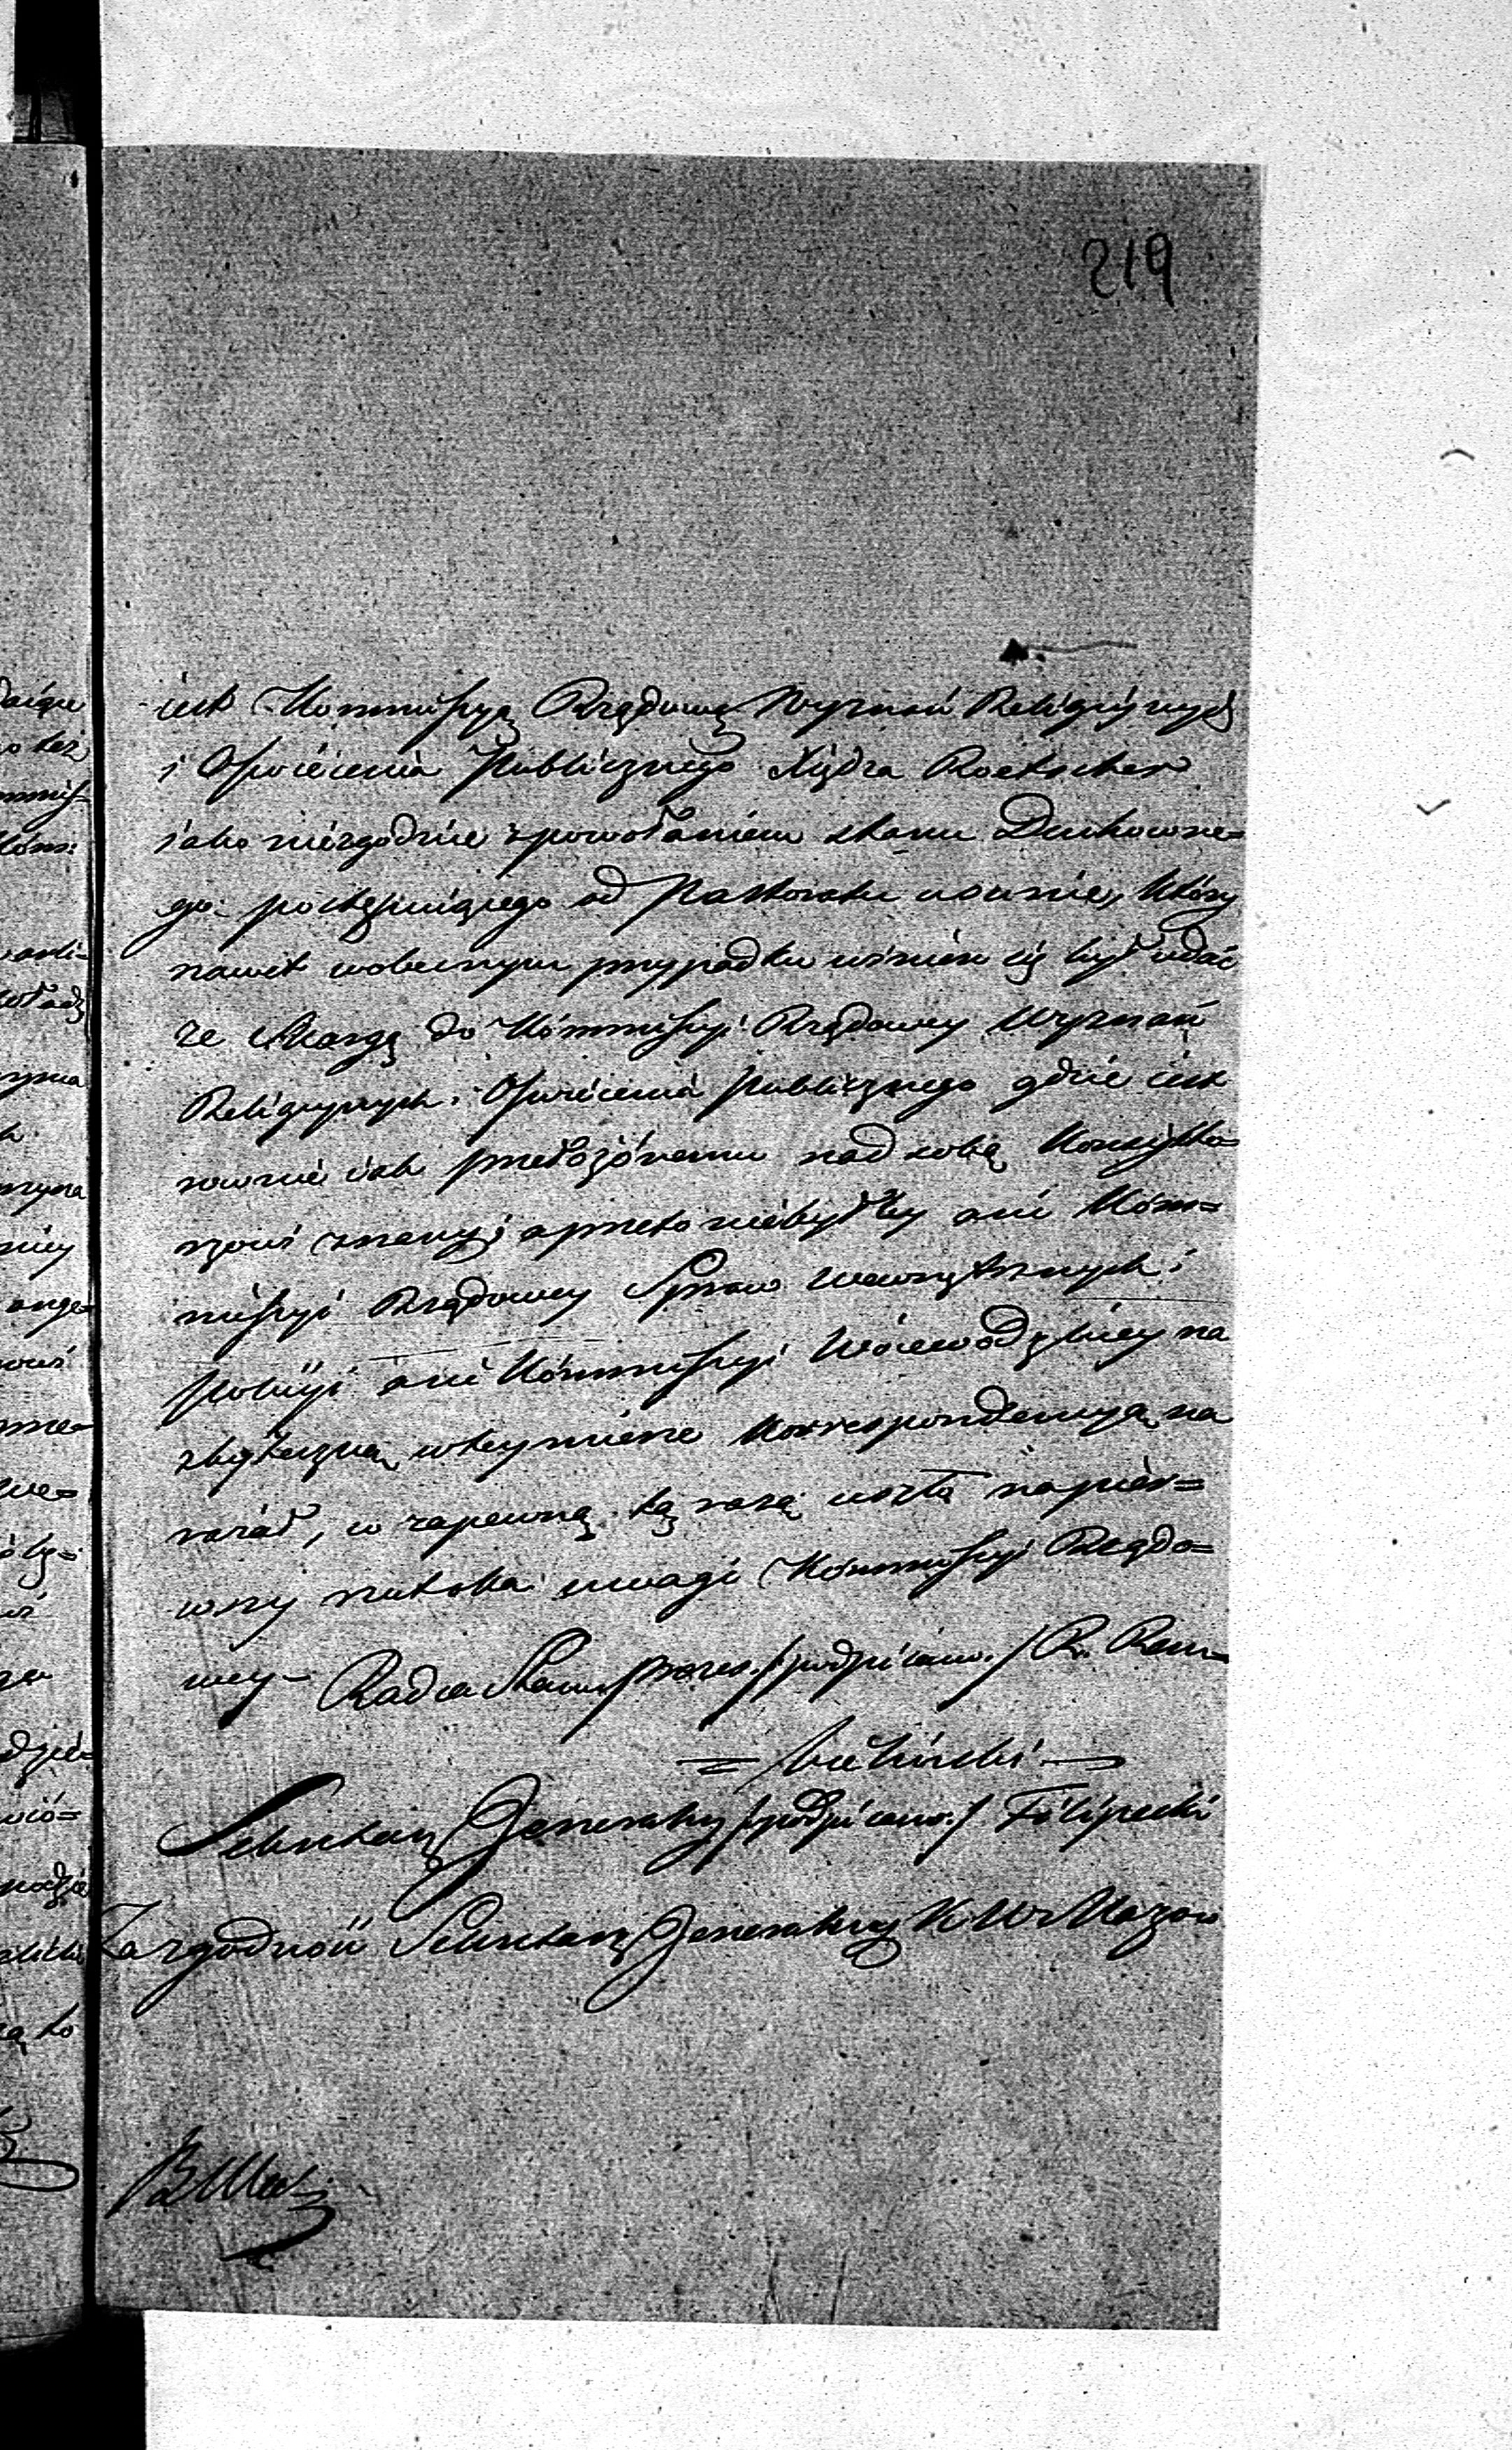 219
iest Kommissyą Rządową Wyznań Religijnych
i Oświecenia Publicznego Xiędza Roetscher
iako niezgodnie z powołaniem stanu Duchowne=
go postępuiącego od Pastoratu usunie, który
nawet wobecnym przypadku winien się był udać
ze skargą do Kommissyi Rządowey Wyznań
Religijnych i Oświecenia Publicznego gdzie iest
równie iak przełożonemu nad sobą Konsysto=
rzowi znany, a przeto niebyłby ani Kom=
missyi Rządowey Spraw Wewnętrznych i
Policyi ani Kommissyi Woiewodzkiey na
zbyteczną wtey mierze Korrespondencyą na
raził, w zapewne tą rażą uszła
uwagi Kommissyi Rządo=
wey – Radca Stanu Prezes /podpisano/ R. Rem=
= bieliński —
Sekretarz Generalny /podpisano/ Filipecki
Za zgodność Sekretarz Generalny K W Mazow